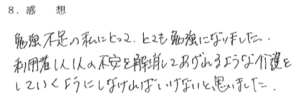 8. 感想
勉強不足の私にとって、とても勉強になりました。
利用者1人1人の不安を解消してあげれるような介護を
していくようにしなければいけないと思いました。